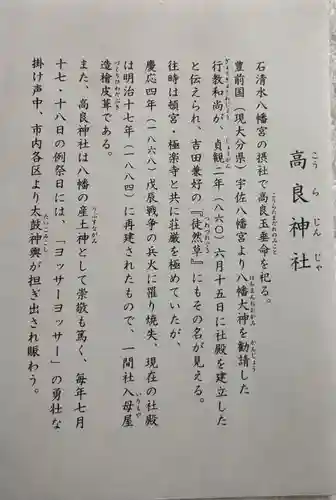 高良神社
石清水八幡宮の摂社で高良玉垂命を祀る。
豊前国（現大分県）宇佐八幡宮より八幡大神を勧請した
行教和尚が、貞観二年（八六〇）六月十五日に社殿を建立した
と伝えられ、吉田兼好の『徒然草』にもその名が見える。
往時は頓宮・極楽寺と共に荘厳を極めていたが、
慶応四年（一八六八）戊辰戦争の兵火に罹り焼失、現在の社殿
は明治十七年（一八八四）に再建されたもので、一間社入母屋
造檜皮葺である。
また、高良神社は八幡の産土神として崇敬も篤く、毎年七月
十七・十八日の例祭日には、「ヨッサーヨッサー」の勇壮な
掛け声中、市内各区より太鼓神輿が担ぎ出され賑わう。